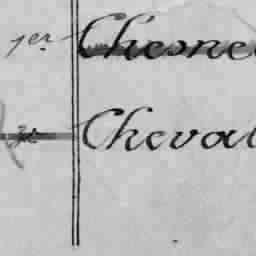 1er Chesne
2e Cheval